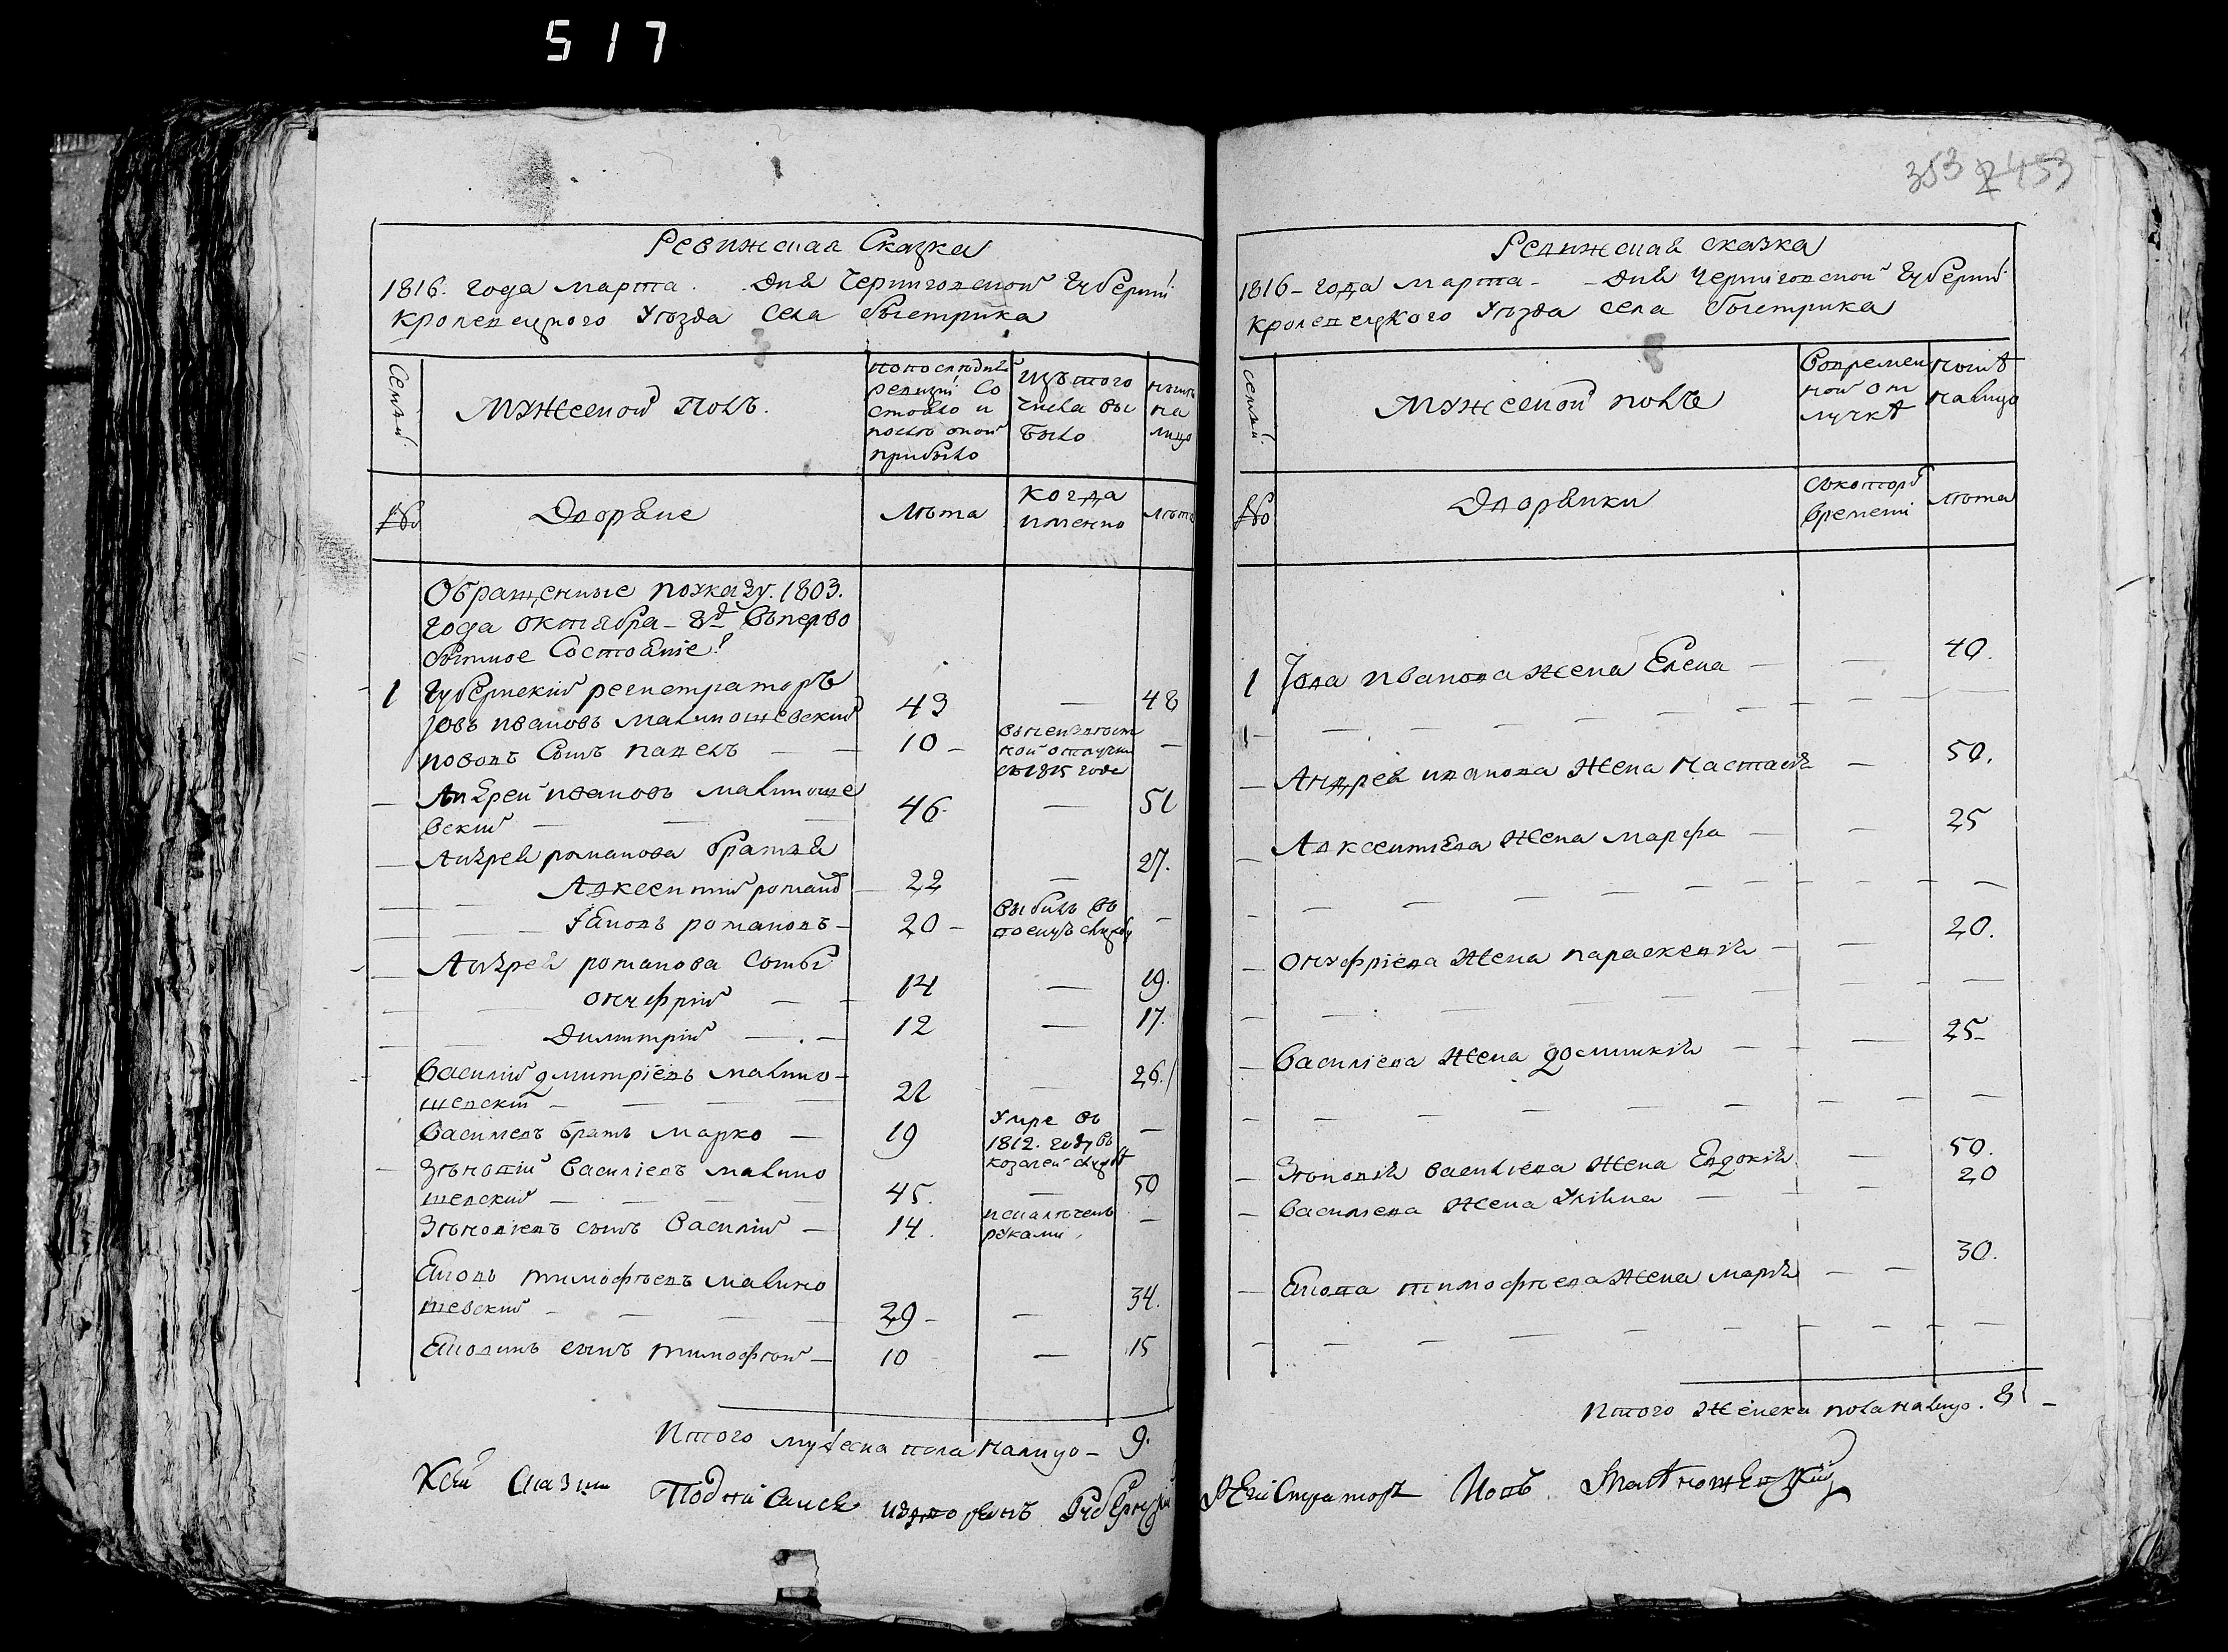 517
353 453
Ревижская Сказка
1816. года марта . . дня Черниговской Губернии
кролевецкого Уезда Села быстрика
Семьи
Мужеской Полъ.
попоследней
ревизіи Со
стояло и
после оной
прибыло
Изъ того
числа вы
было
ныне
на
лицо
№
Дворяне
Лѣта
когда
именно
лѣта
Обращенные поуказу. 1803.
года октября – 8д Въперво
бытное Состояніе.
1 Губернский регистраторъ
Іовъ ивановъ малиношевский 43 — 48
Іововъ Сынъ павелъ — — 10 – —
ной отлучки
съ 1815 года
— Андрей ивановъ малиноше
вский — — — 46. — 51
— Андрея романова братья
— — Авксентий романов — 22 — 27.
— — Іаковъ романовъ – 20 – выбылъ въ
воену службу —
— Андрея романова Сыны
— — онуфрий — — 14 — 19.
— — Димитрий — . – 12 — 17.
Василий дмитріевъ малино–
шевский — — — — 21 — 26.
Васильевъ братъ марко — 19 Умре въ
1812. году въ
козачей службѣ —
Зѣновий Василіевъ малино
шевский — — — — 45. — 50
Зѣновіевъ сынъ Василий — 14. —
руками.
тимофѣевъ малино
шевский — — — — 29 – — 34.
сынъ тимофѣй — 10 — 15
Итого мужеска пола налицо – 9.
Ревижская сказка
1816 – года марта – – дня Черниговской Губернии
кролевецкого Уѣзда села быстрика
семьи
Мужеской полъ
Вовремен
ной от
лучкѣ
налицо
№
Дворянки
съкоторо
времени
лѣта
1 Іова иванова жена Елена — — 40.
— Андрея иванова жена настасія — 50.
— Авксентиева жена марфа — — 25
— онуфріева жена параскевія — — 20.
— Василіева жена домникія — — 25–
— Зѣновія василіева жена Евдокія — 50.
— Василіева жена Уліяна — — 20
— тимофѣева жена марія — — 30.
Итого женска пола налицо. 8 –
Подпи Сался издворянъ Губернский РЕгиСтратор Иовъ